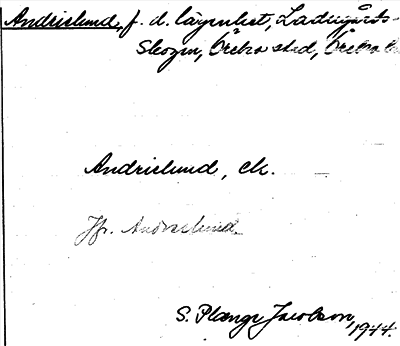 Andrielund, f. d. lägenhet, Ladugårds-
Skogen, Örebro stad, Örebro
Andrielund, ek.
Jfr. Andrelund
S. Plange Jacobson, 1944.